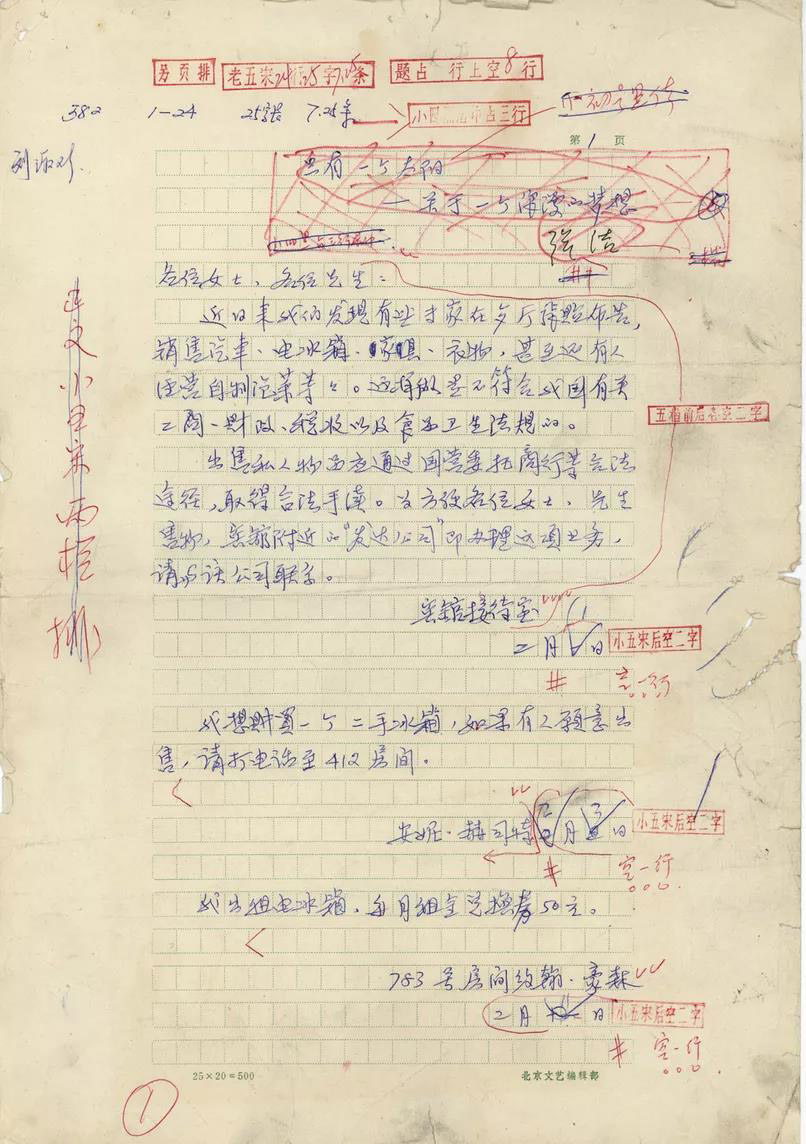 另页排
老五宋24行25字7.25条
题占 行上空8行
382 1—24 25字 7.25条
小四 占三行
第1页
只有一个太阳
——关于一个浪漫的梦想
张洁
各位女士、各位先生：
近日来我们发现有些专家在餐厅张贴布告，
销售汽车、电冰箱、家俱、衣物，甚至还有人
经营自制泡菜等等。这种做法是不符合我国有关
工商、财政、税收以及食品卫生法规的。
五宋前后各空二字
出售私人物品应通过国营委托商行等合法
途径，取得合法手续。为方便各位女士、先生
售物，宾馆附近的“发达公司”即办理这项业务，
请与该公司联系。
宾馆接待室
二月 日
小五宋后空二字
空一行
我想购买一个二手冰箱，如果有人愿意出
售，请打电话至412房间。
安妮·赫司特 二月 日
小五宋后空二字
空一行
我出租电冰箱，每月租金兑换券50元。
783号房间约翰·豪森
二月 日
小五宋后空二字
空一行
正文小五宋两栏排
25×20=500
北京文艺编辑部
1